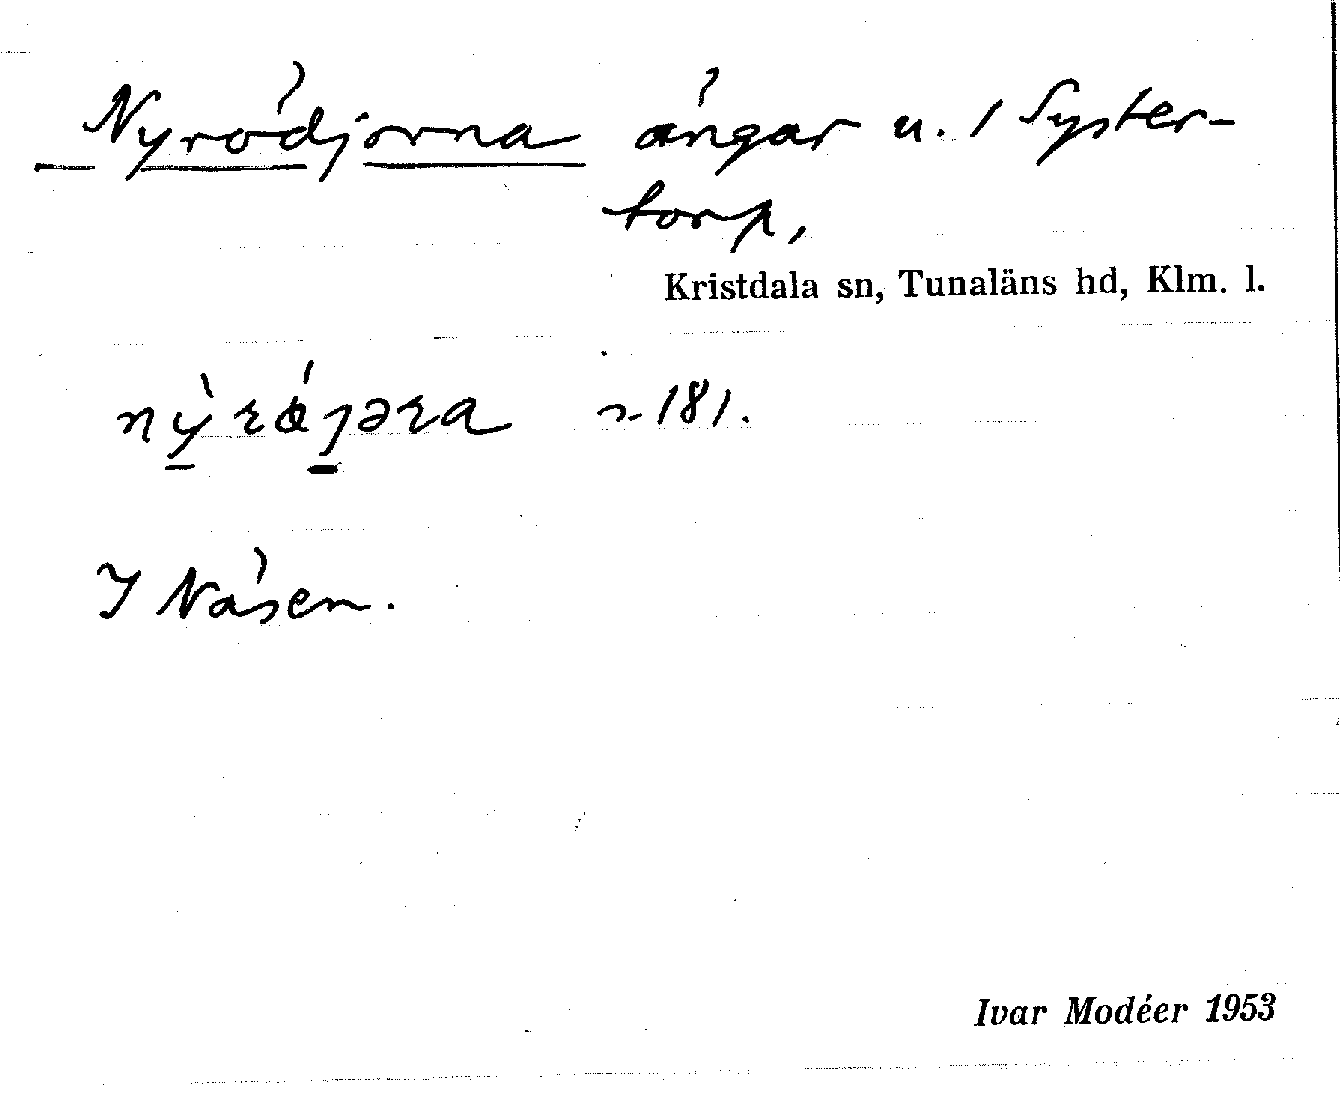 Nyrödjorna ängar u. 1 Syster-
torp,
Kristdala sn, Tunaläns hd, Klm. l.
181.
I Näsen.
Ivar Modéer 1953